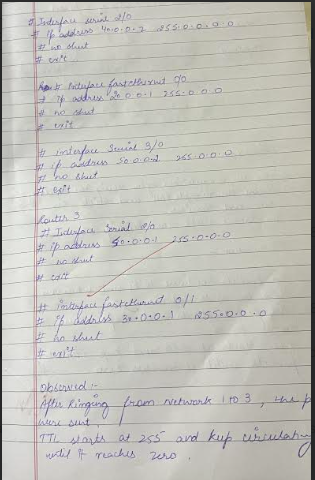 # Interface serial 2/0
# ip address 40.0.0.2 255.0.0.0
# no shut
# exit
# Interface fastethernet 0/0
# Ip address 20.0.0.1 255.0.0.0
# no shut
# exit
# interface Serial 3/0
# ip address 50.0.0.2 255.0.0.0
# no shut
# exit
Router 3
# Interface Serial 2/0
# ip address 50.0.0.1 255.0.0.0
# no shut
# exit
# interface fastethernet 0/1
# ip address 30.0.0.1 255.0.0.0
# no shut
# exit
Observed:-
After Pinging from Network 1 to 3, the p
were sent.
TTL starts at 255 and kup circulating
until it reaches zero.